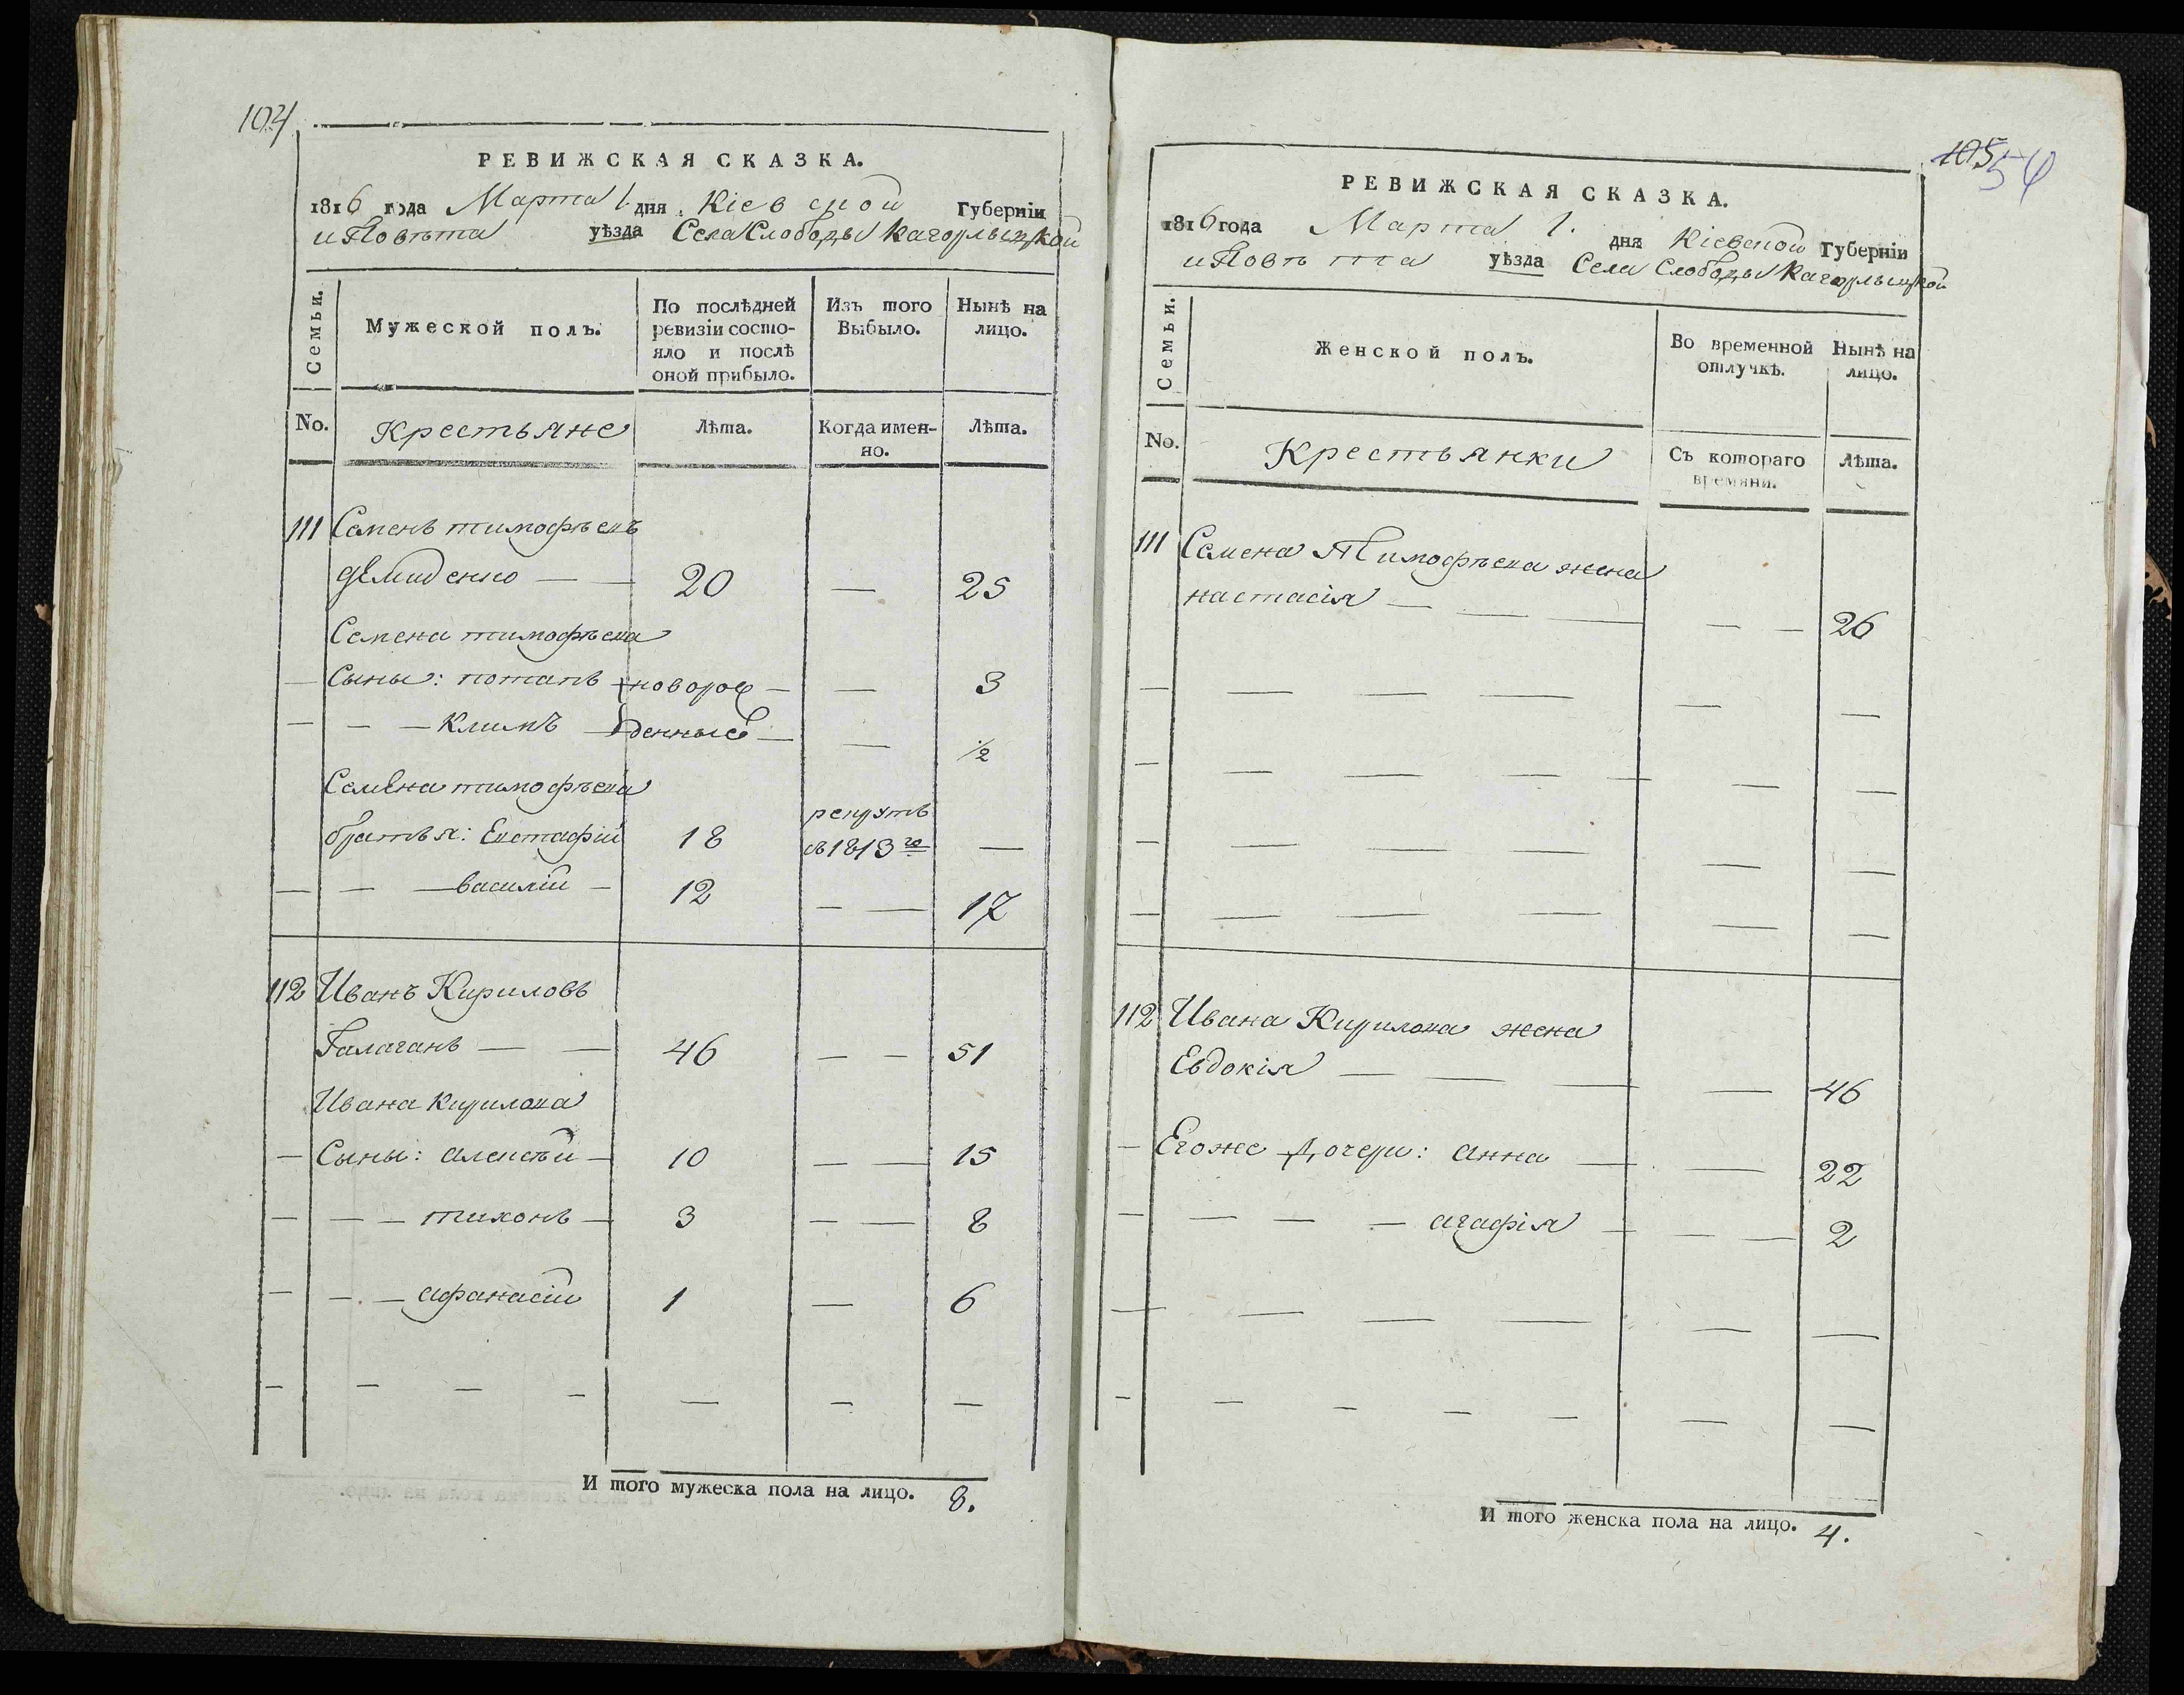 104
РЕВИЖСКАЯ СКАЗКА.
1816 года Марта 1. дня. Кіевской Губерніи
и Повѣта уѣзда Села Слободы Кагорлыцкой
Семьи.
Мужеской полъ.
По послѣдней ревизіи состо-
яло и послѣ
оной прибыло.
Изъ того
Выбыло.
Нынѣ на
лицо.
No.
Крестьяне
Лѣта.
Когда имен-
но.
Лѣта.
111 Семенъ тимофѣевъ
демиденко — — 20 — 25
Семена тимофѣева
— Сыны: потапъ новорож — — 3
— — — Климъ — денные — — 1/2
Семена тимофѣева
рекрутъ
братья: Евстафій 18 въ 1813 го —
— — — василій — 12 — — 17
112 Иванъ Кириловъ
Галаганъ — — 46 — — 51
Ивана Кирилова
— Сыны: алексѣй — 10 — — 15
— — — тихонъ — 3 — — 8
— — — афанасій 1 — 6
— — — — — — —
И того мужеска пола на лицо. 8.
105 54
РЕВИЖСКАЯ СКАЗКА.
1816 года Марта 1. дня Кіевской Губерніи
и Повѣта уѣзда Села Слободы Кагорлыцкой
Семьи.
Женской полъ.
Во временной
отлучкѣ.
Нынѣ на
лицо.
No.
Крестьянки
Съ котораго
времяни.
Лѣта.
111 Семена Тимофѣева жена
настасія — — — — — 26
— — — — — —
— — — — — — —
— — — — — —
— — — — — —
112 Ивана Кирилова жена
Евдокія — — — — 46
— Егоже дочери: анна — — 22
— — — — агафія — — — 2
— — — — — —
— — — — — — —
И того женска пола на лицо. 4.